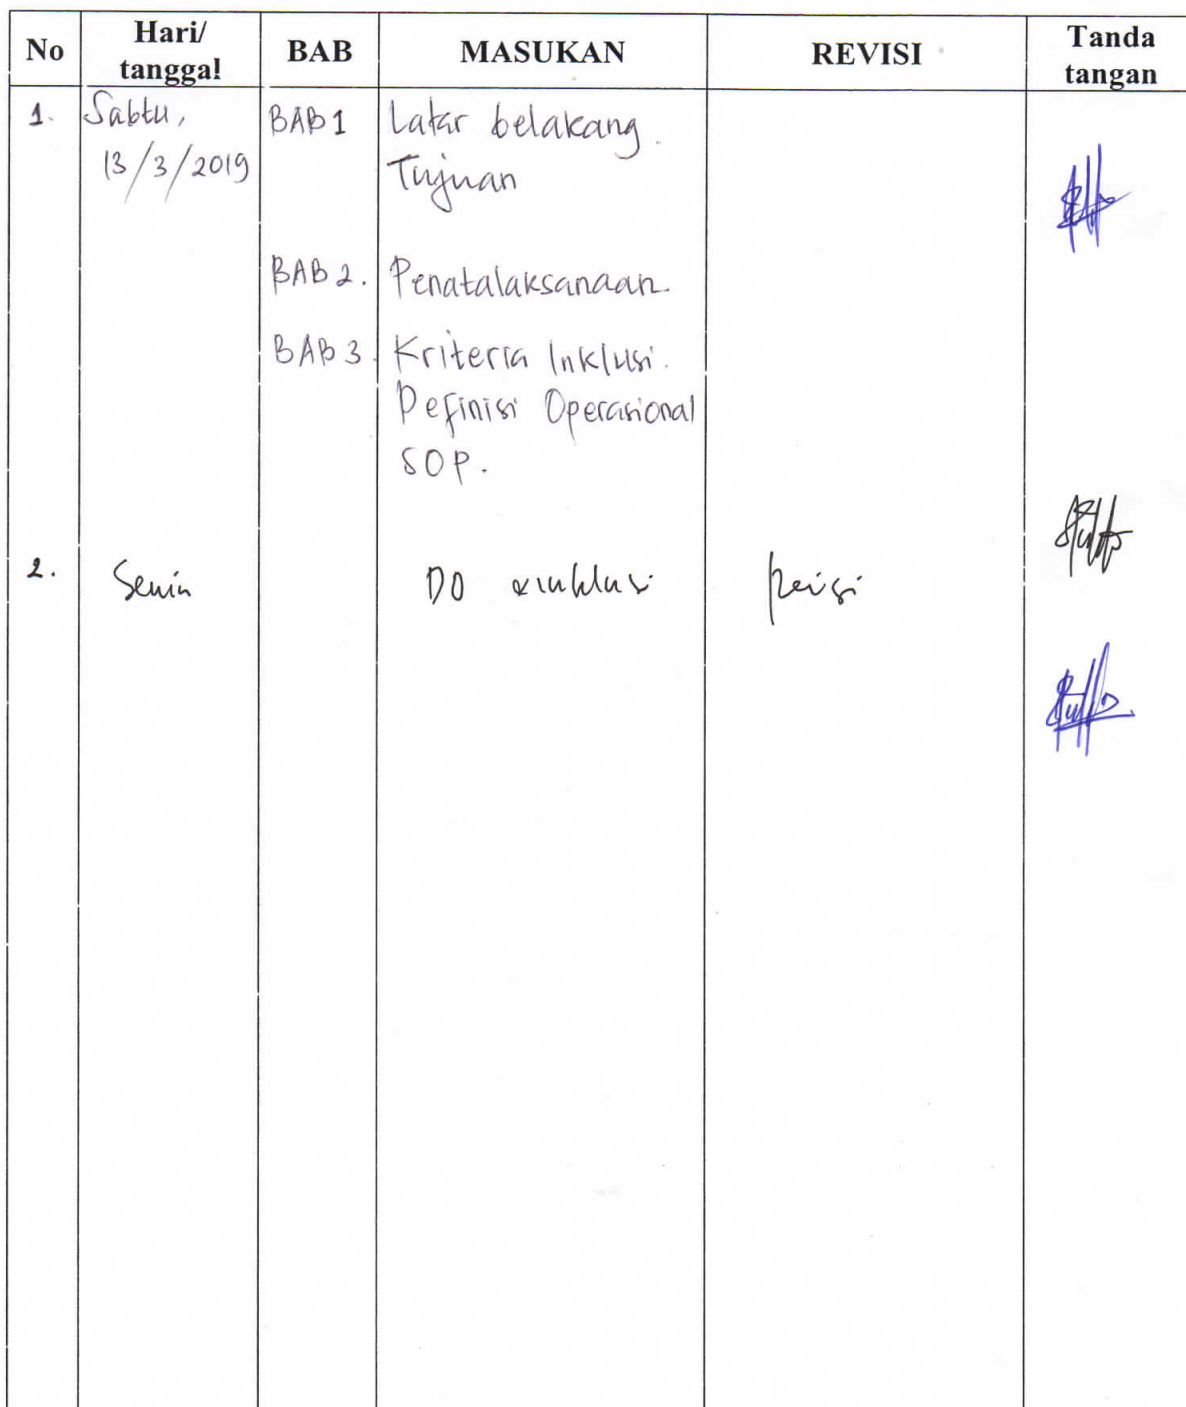 No Hari/ tanggal BAB MASUKAN REVISI Tanda tangan
1. Sabtu, BAB 1 Latar belakang.
13/3/2019 Tujuan
BAB 2. Penatalaksanaan.
BAB 3. Kriteria Inklusi.
Definisi Operasional
SOP.
2. Senin DO inklusi Revisi